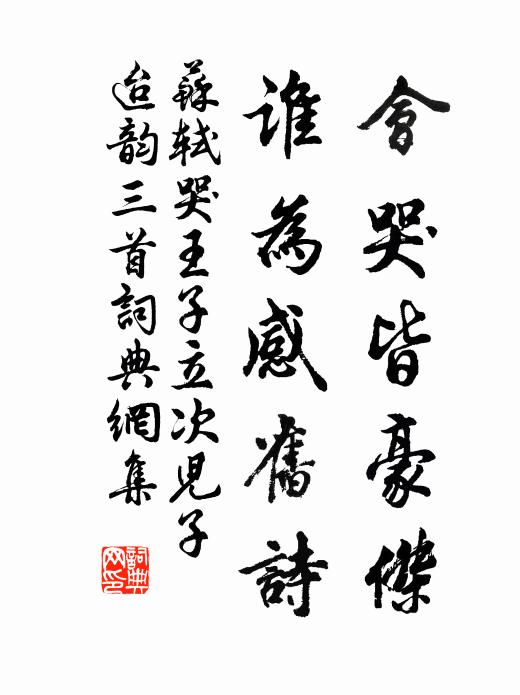 會哭皆豪傑
誰為感舊詩
蘇軾哭王子立次兒子
迨韵三首詞典網集
詞典網印